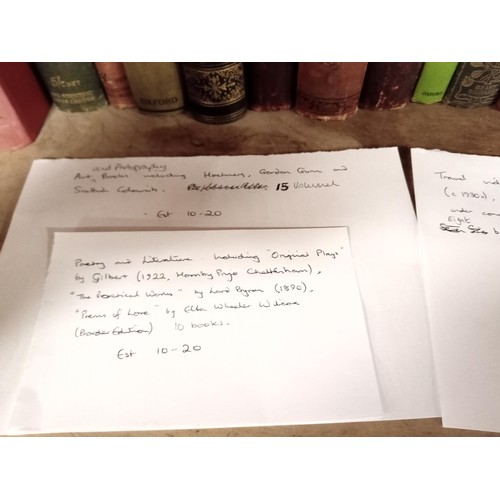 OXFORD
and Photography
Art, Books including Hockney, Gordon Gunn and
Scottish Colourists, 15 Volumes
- Est 10-20
Poetry and Literature including "Original Plays"
by Gilbert (1922, Hornby Prize Cheltenham),
"The Poetical Works" by Lord Byron (1890),
"Poems of Love" by Ella Wheeler Wilcox
(Border Edition) 10 books.
Est 10-20
Travel
(c 1930s),
under
Eight